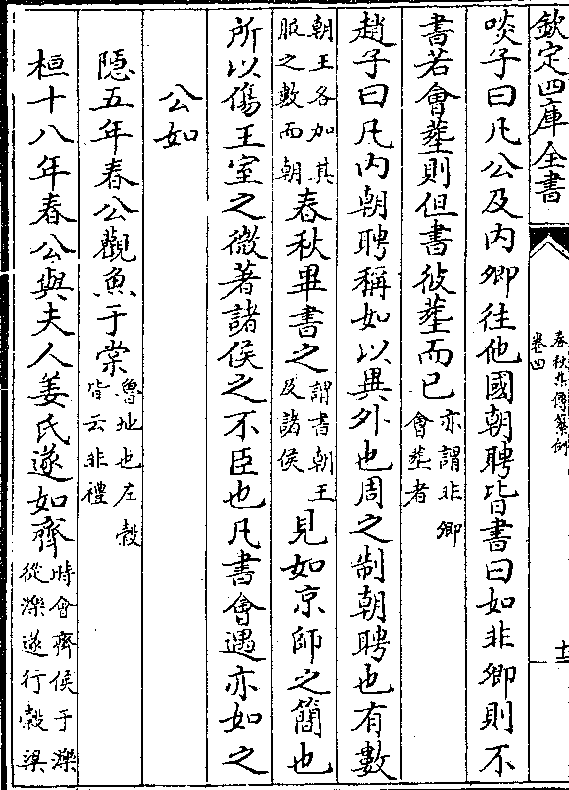 欽定四庫全書
春秋集傳纂例
卷四
十三
啖子曰凡公及内卿往他國朝聘皆書曰如非卿則不
書若會葬則但書彼葬而已亦謂非卿會葬者
趙子曰凡内朝聘稱如以異外也周之制朝聘也有數
朝王各加其服之數而朝春秋畢書之謂書朝王及諸侯見如京師之簡也
所以傷王室之微著諸侯之不臣也凡書會遇亦如之
公如
隱五年春公觀魚于棠魯地也左穀皆云非禮
桓十八年春公與夫人姜氏遂如齊時會齊侯于濼從濼遂行穀梁